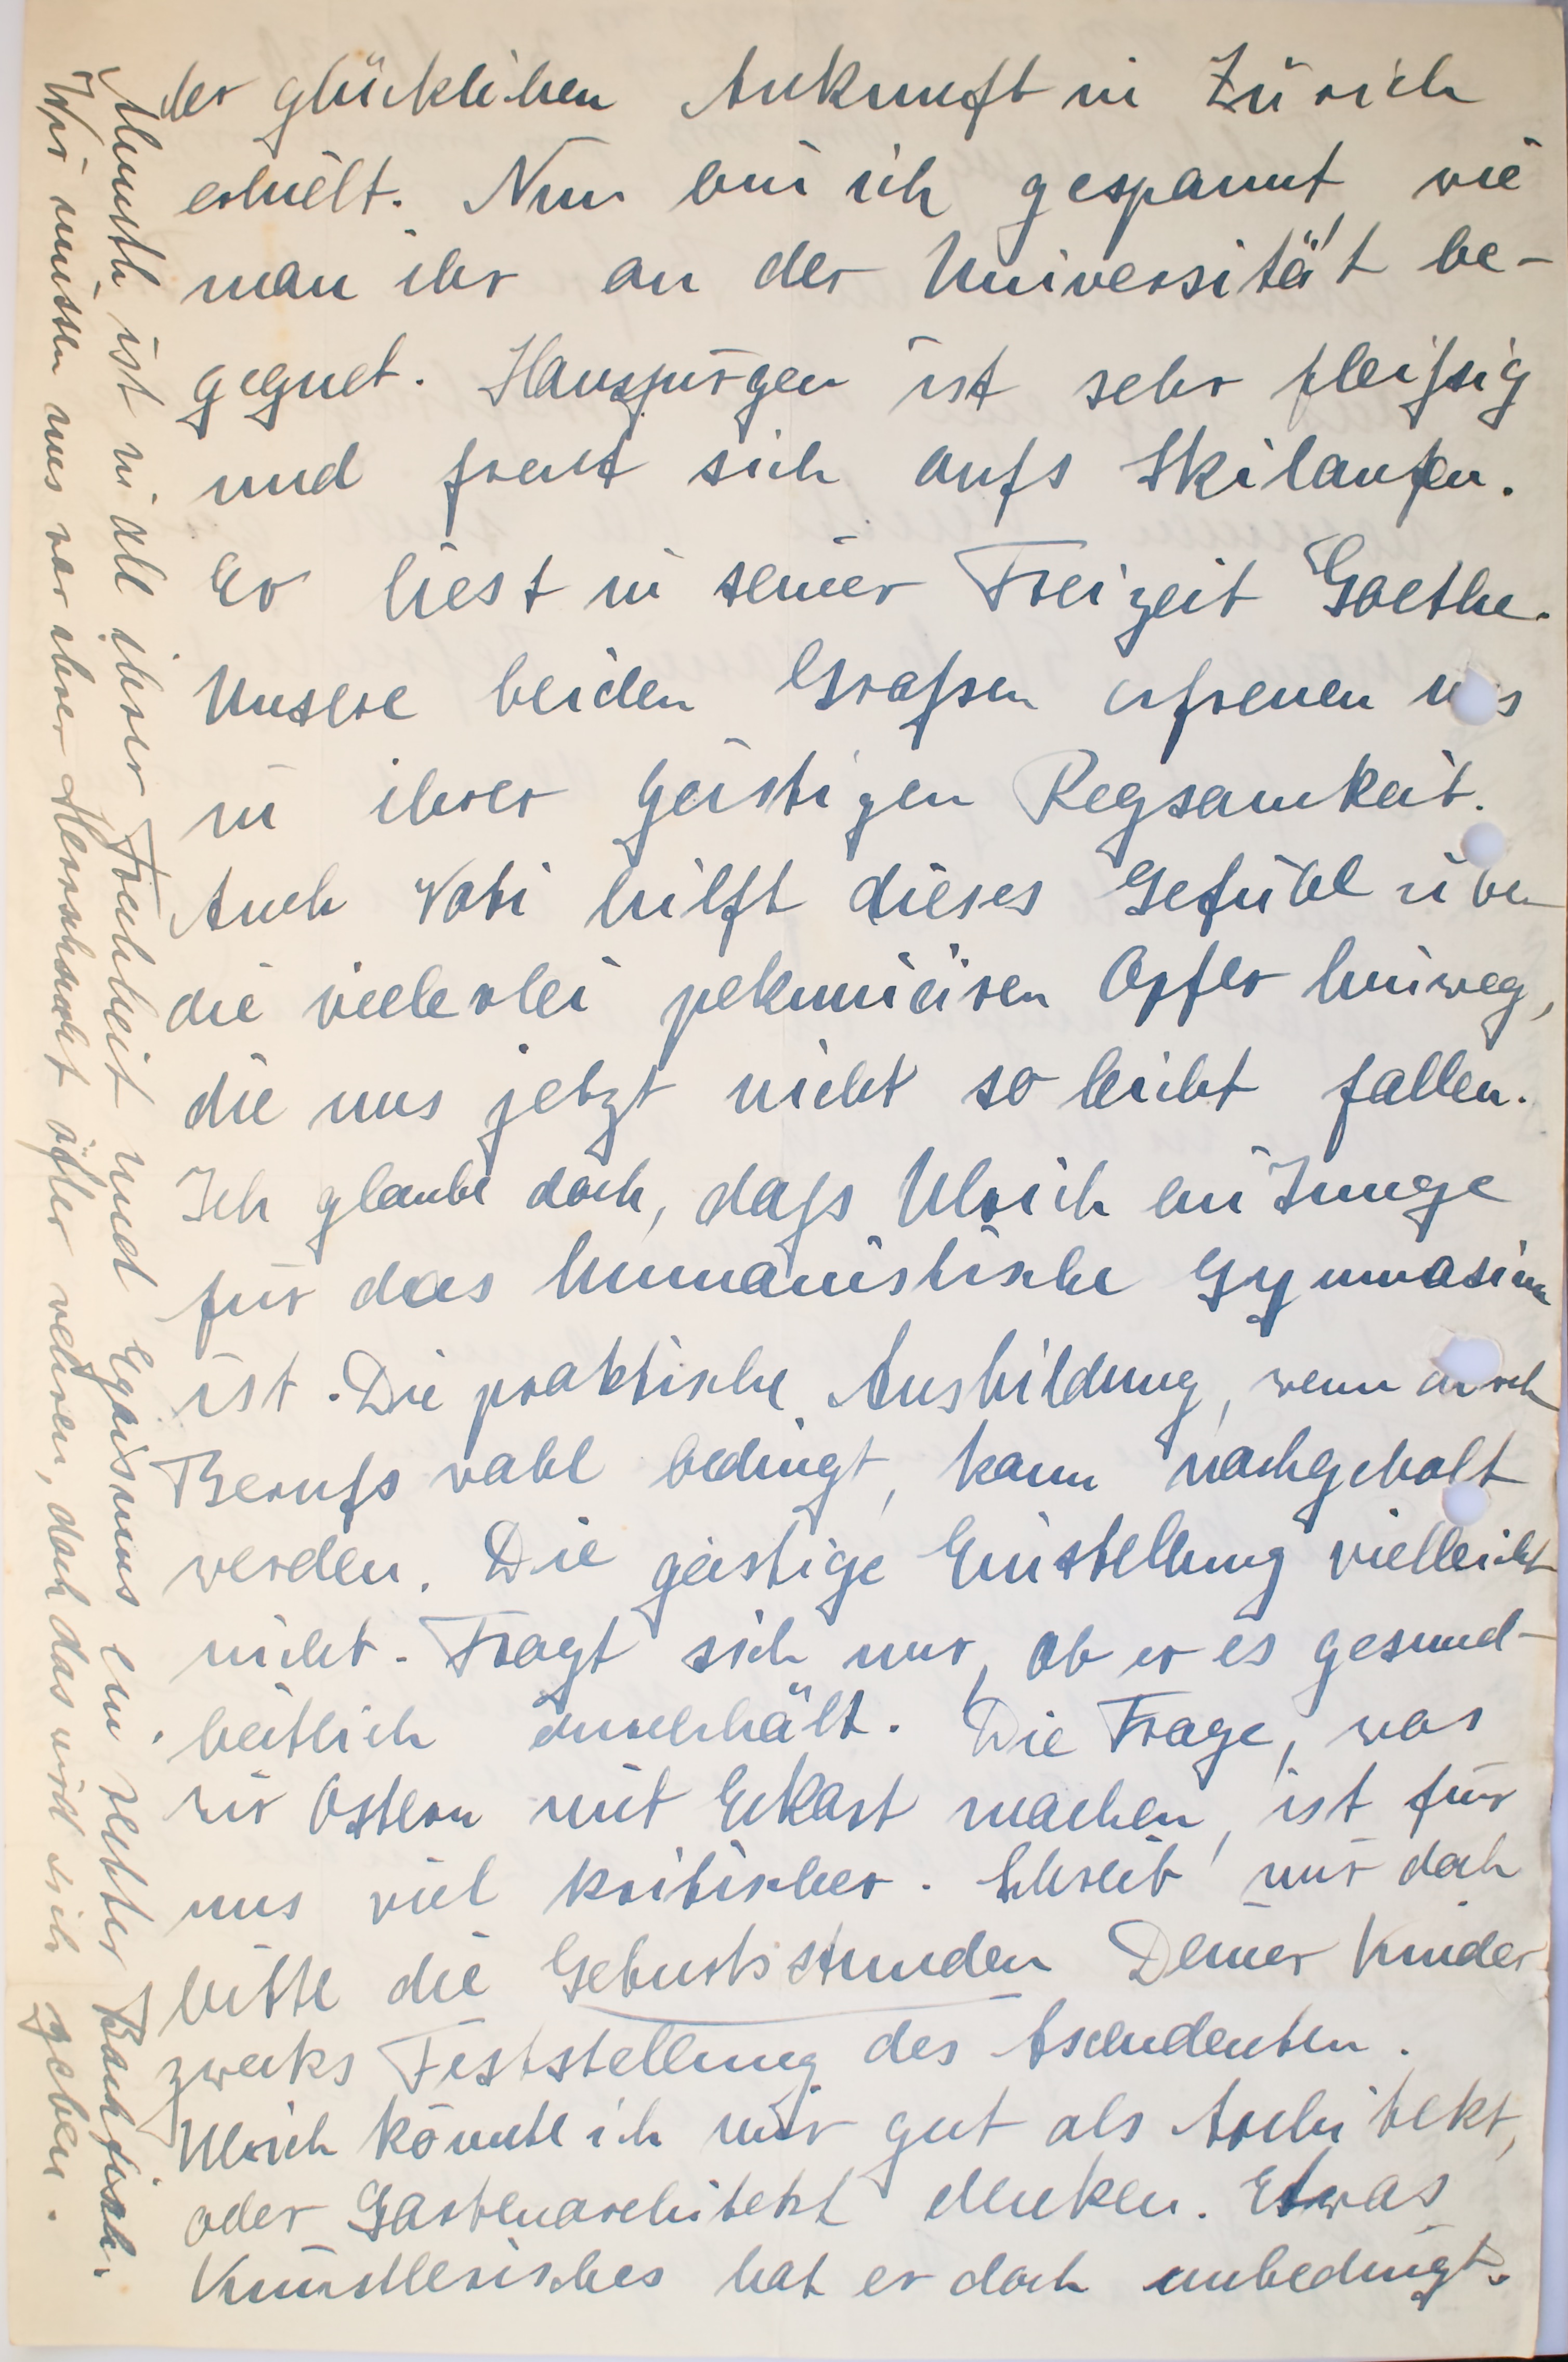 der glücklichen Ankunft in Zürich
erhielt. Nun bin ich gespannt, wie
man ihr an der Universität be-
gegnet. Hansjürgen ist sehr fleißig
und freut sich aufs Skilaufen.
Er liest in seiner Freizeit Goethe.
Unsere beiden Großen erfreuen uns
in ihrer geistigen Regsamkeit.
Auch Vati hilft dieses Gefühl über
die vielerlei pekuniären Opfer hinweg,
die uns jetzt nicht so leicht fallen.
Ich glaube doch, daß Ulrich ein Junge
für das humanistische Gymnasium
ist. Die praktische Ausbildung, wenn durch
Berufswahl bedingt, kann nachgeholt
werden. Die geistige Einstellung vielleicht
nicht. Fragt sich nur, ob er es gesund-
heitlich durchhält. Die Frage, was
wir Ostern mit Eckart machen, ist für
uns viel kritischer. Schreib' mir doch
bitte die Geburtsstunden Deiner Kinder
zwecks Feststellung des Ascendenten.
Ulrich könnte ich mir gut als Architekt,
oder Gartenarchitekt denken. Etwas
Künstlerisches hat er doch unbedingt.
ist in all ihrer Frechheit und Egoismus ein rechter Backfisch.
Wir müssen uns vor ihrer Herrschsucht öfter wehren, doch das wird sich geben.